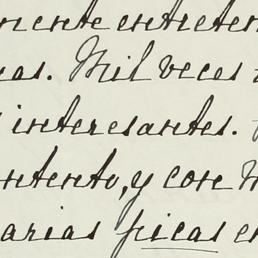 mente entreten
as. Mil veces
interesantes.
ntento, y con
arias picas en